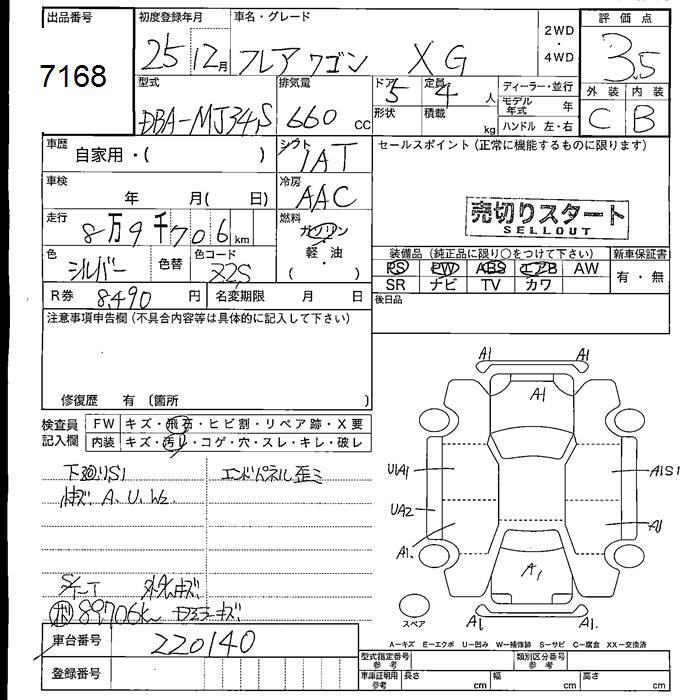 出品番号 初度登録年月 車名・グレード 2WD・4WD 評価点
7168 25 12月 フレアワゴン XG 3.5
型式 排気量 ドア 5 定員 4人 ディーラー・並行 外装 内装
DBA-MJ34S 660 cc 形状 積載 kg モデル年式 年 C B
ハンドル 左・右
車歴 自家用・( ) シフト IAT セールスポイント (正常に機能するものに限ります)
車検 年 月( 日) 冷房 AAC
売切りスタート
SELLOUT
走行 8万9千706km 燃料 ガソリン・軽・油 ( )
色 シルバー 色替 色コード Z2S
装備品 (純正品に限り○をつけて下さい) 新車保証書
PS PW ABS エアB AW 有・無
SR ナビ TV カワ
R券 8,490円 名変期限 月 日 後日品
注意事項申告欄 (不具合内容等は具体的に記入して下さい)
修復歴 有 〔箇所 〕
検査員記入欄 FW キズ・飛石・ヒビ割・リペア跡・X要
内装 キズ・汚レ・コゲ・穴・スレ・キレ・破レ
下廻りS1 エンドパネル歪ミ
キズ A. U. W2.
外キズ
ボ 89706k ドアミラーキズ
A1 A1
A1
U1A1 A1S1
UA2
A1. A1
A1
スペア A1. A1.
A-キズ E-エクボ U-凹み W-補修跡 S-サビ C-腐食 XX-交換済
車台番号 220140
登録番号
型式指定番号 参考 類別区分番号 参考
車庫証明用 参考 長さ cm 幅 cm 高さ cm